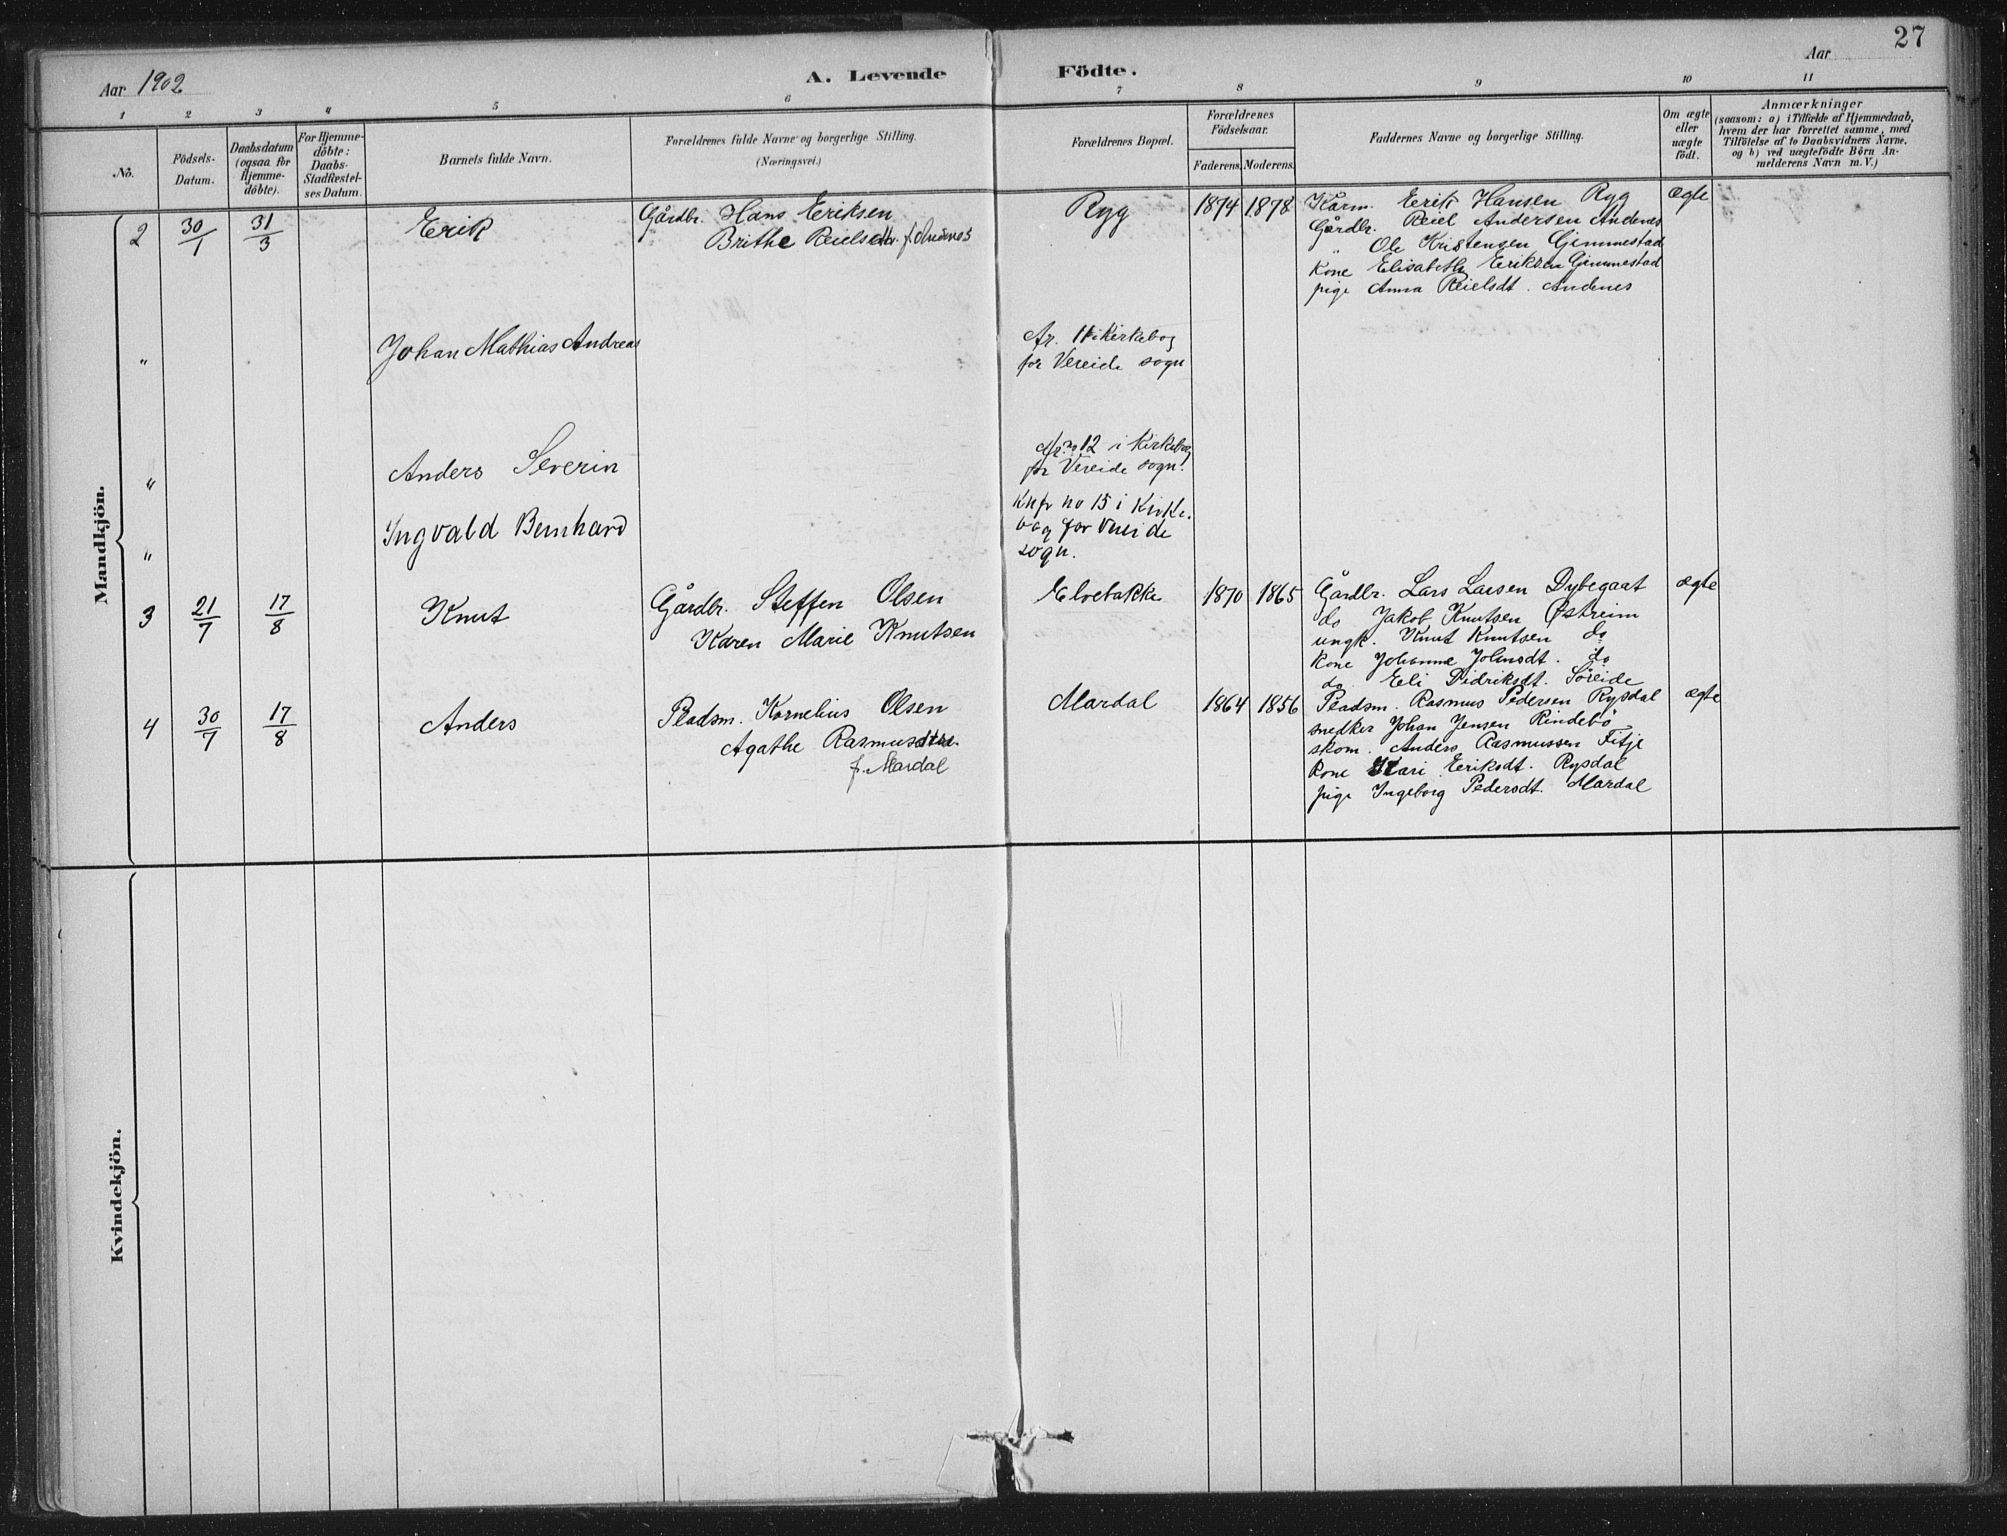 27
Aar 1902
A. Levende Födte.
Aar
1 2 3 4 5 6 7 8 9 10 11
No.
Födsels-Datum.
Daabsdatum (ogsaa for Hjemmedöbte).
For Hjemmedöbte: Daabs-Stadfæstelses Datum.
Barnets fulde Navn.
Forældrenes fulde Navne og borgerlige Stilling. (Næringsvei.)
Forældrenes Bopæl.
Forældrenes Födselsaar.
Faderens. Moderens.
Faddernes Navne og borgerlige Stilling.
Om ægte eller uægte födt.
Anmærkninger
(saasom: a) i Tilfælde af Hjemmedaab, hvem der har forrettet samme, med Tilföielse af to Daabsvidners Navne, og b) ved uægtefödte Börn Anmelderens Navn m. V.)
Mandkjön.
2 30/1 31/3 Erik Gårdbr. Hans Eriksen Ryg 1874 1878 Kårm. Erik Hansen Ryg ægte
Brithe Reielsdtr. f. Andenes Gårdbr. Reiel Andersen Andenes
" Ole Kristensen Gimmestad
Kone Elisabeth Eriksen Gimmestad
pige Anna Reielsdt. Andenes
" Johan Mathias Andreas Nr. 11 i Kirkebog
for Vereide sogn
" Anders Severin Nr. 12 i Kirkebog
for Vereide sogn.
" Ingvald Bernhard Knfr no 15 i Kirke-
bog for Vereide
sogn.
3 21/7 17/8 Knut Gårdbr. Steffen Olsen Elvebakke 1870 1865 Gårdbr. Lars Larsen Dybegaat ægte
Karen Marie Knutsen do Jakob Knutsen Østreim
ungk. Knut Knutsen do
Kone Johanne Johnsdt. do
do Eli Didriksdt. Søreide
4 30/7 17/8 Anders Pladsm. Kornelius Olsen Mardal 1864 1856 Pladsm. Rasmus Pedersen Rysdal ægte
Agathe Rasmusdtr. snedker Johan Jensen Rindebø
f. Mardal skom. Anders Rasmussen Fitje
Kone Kari Eriksdt. Rysdal
pige Ingeborg Pedersdt. Mardal
Kvindekjön.